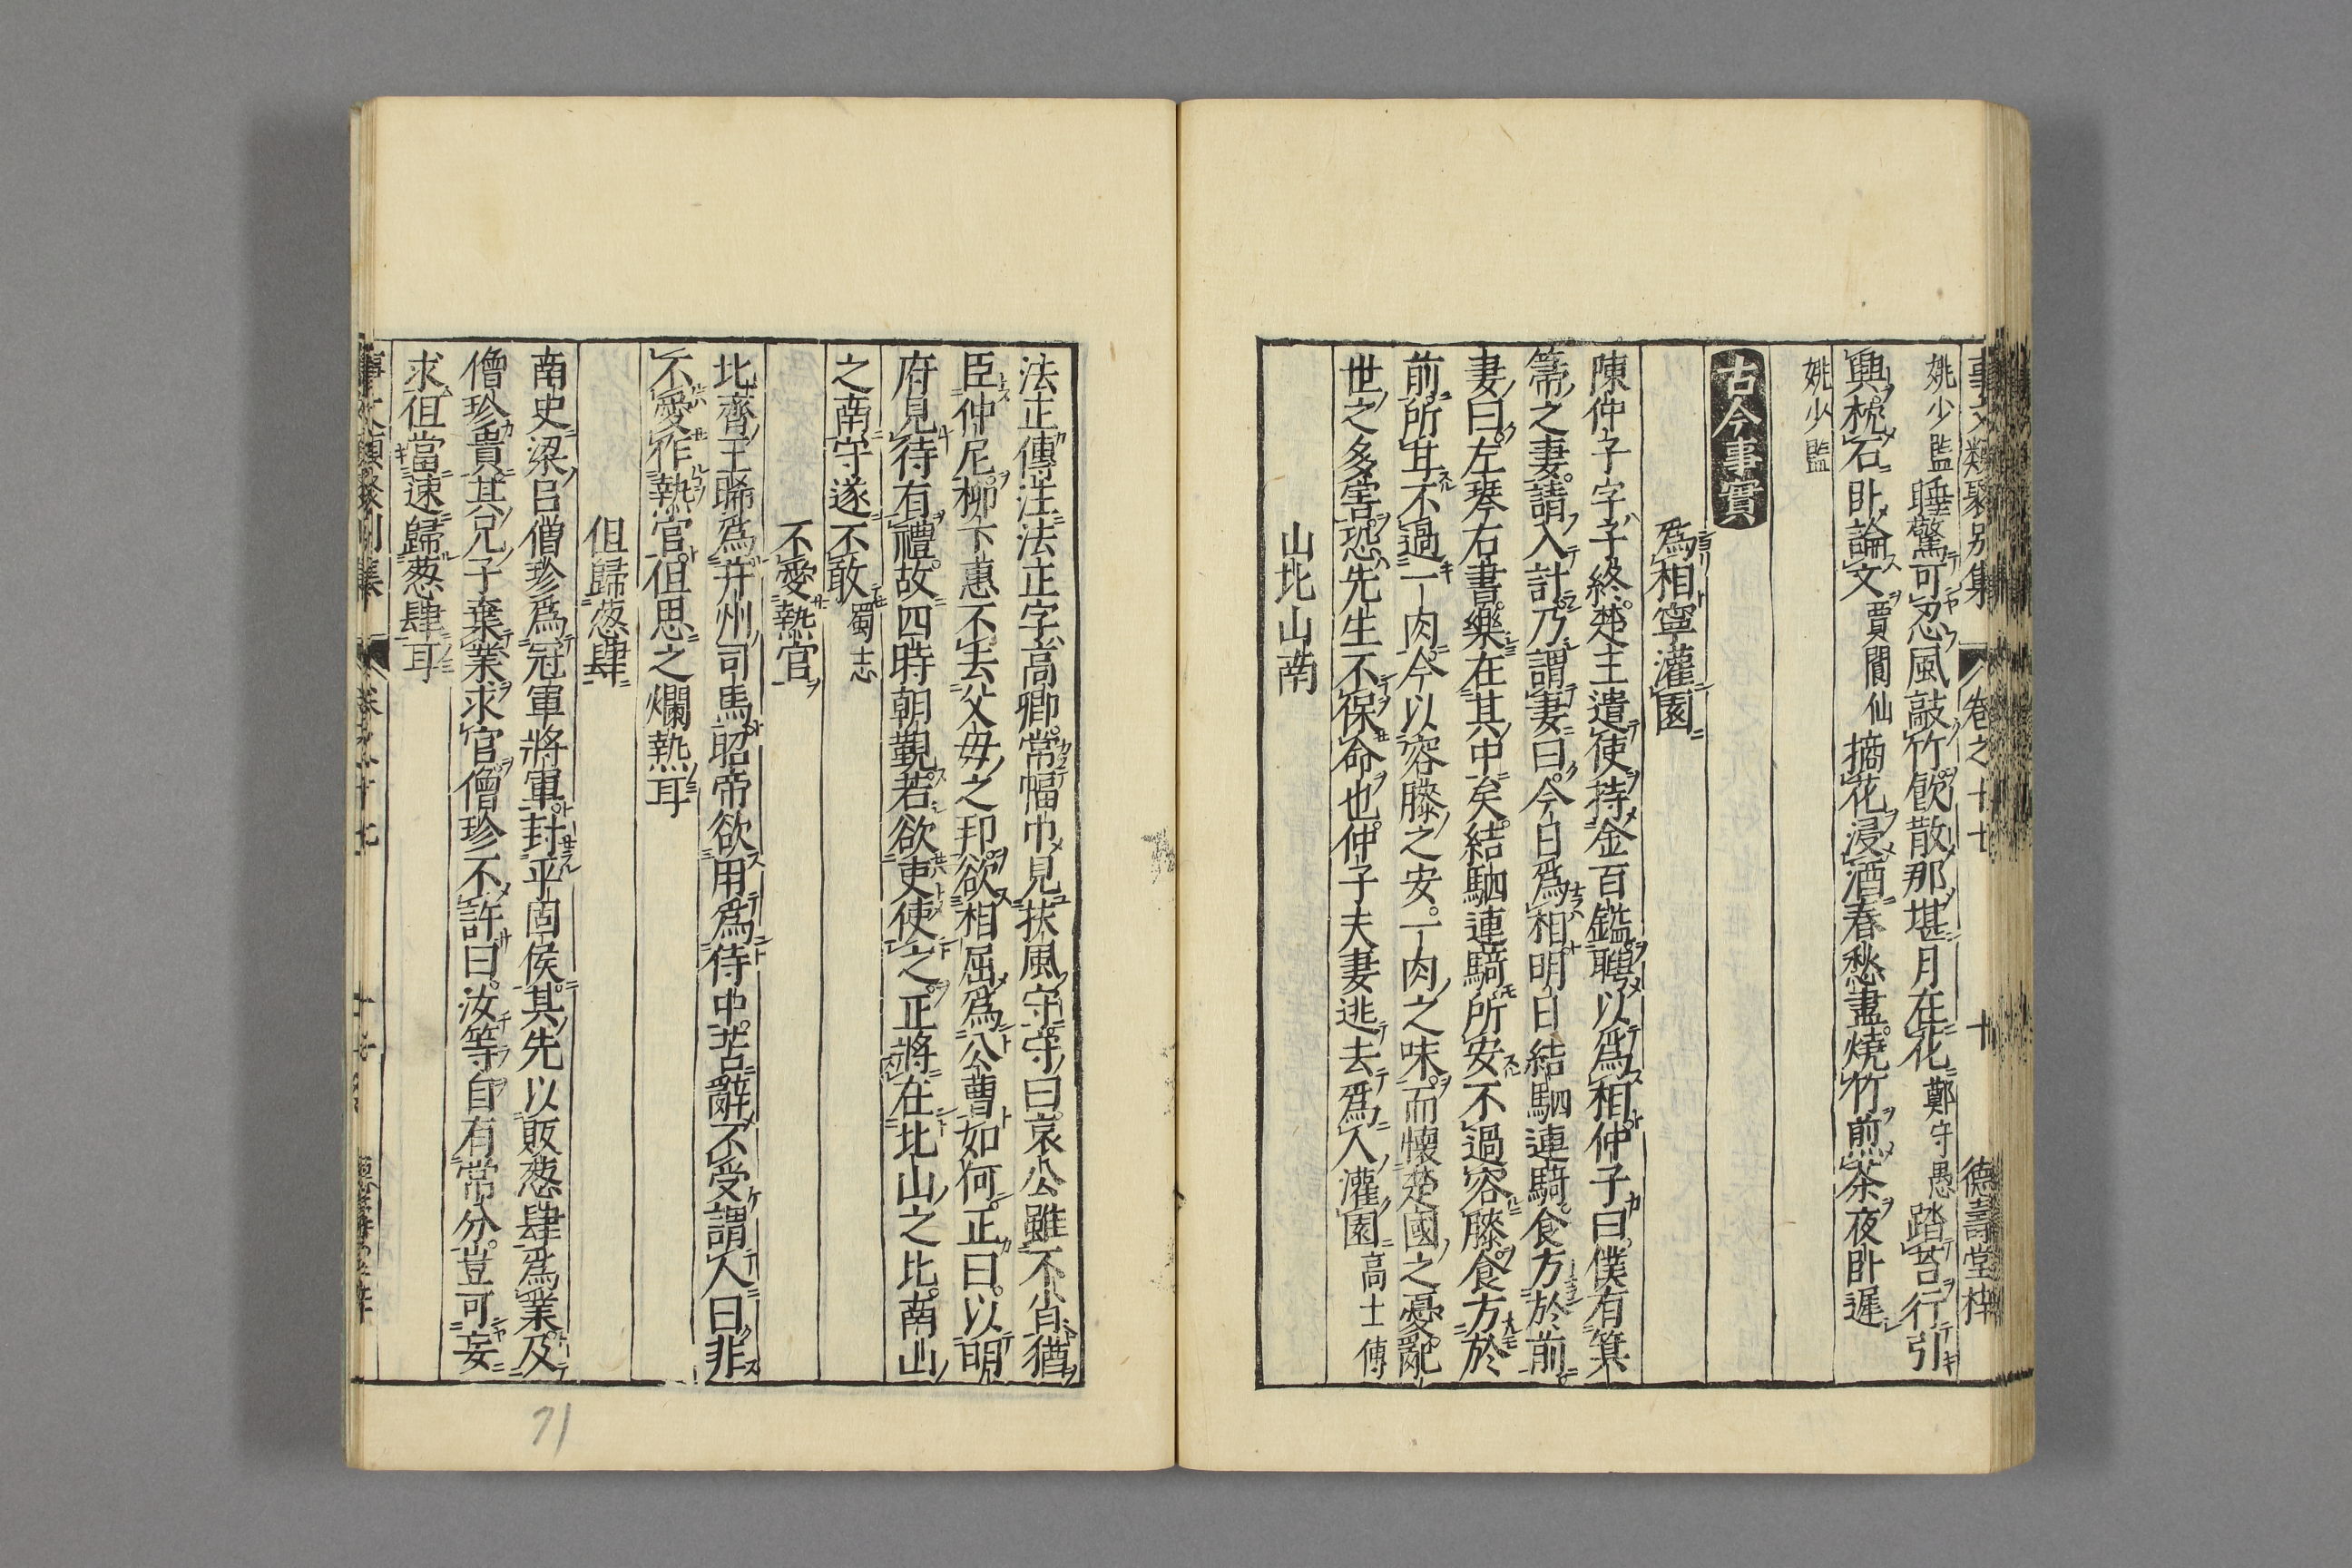 事文類聚別集 卷之十七 十 德壽堂梓
姚少監睡驚可忍風敲竹飮散那堪月在花鄭守愚踏苔行引
興枕石卧論文賈閬仙摘花浸酒春愁盡燒竹煎茶夜卧遲
姚少監
古今事實
爲相寧灌園
陳仲子字子終楚王遣使持金百鎰聘以爲相仲子曰僕有箕
箒之妻請入計乃謂妻曰今日爲相明日結駟連騎食方於前
妻曰左琴右書樂在其中矣結駟連騎所安不過容膝食方於
前所甘不過一肉今以容膝之安一肉之味而懷楚國之憂亂
世之多害恐先生不保命也仲子夫妻逃去爲人灌園高士傳
山北山南
法正傳注法正字高卿常幅巾見扶風守守曰哀公雖不肖猶
臣仲尼柳下惠不去父母之邦欲相屈爲公曹如何正曰以明
府見待有禮故四時朝覲若欲吏使之正將在北山之北南山
之南守遂不敢蜀志
不愛熱官
北齊王晞爲并州司馬昭帝欲用爲侍中苦辭不受謂人曰非
不愛作熱官但思之爛熱耳
但歸葱肆
南史梁呂僧珍爲冠軍將軍封平固侯其先以販葱肆爲業及
僧珍貴其兄子棄業求官僧珍不許曰汝等自有常分豈可妄
求但當速歸葱肆耳
71